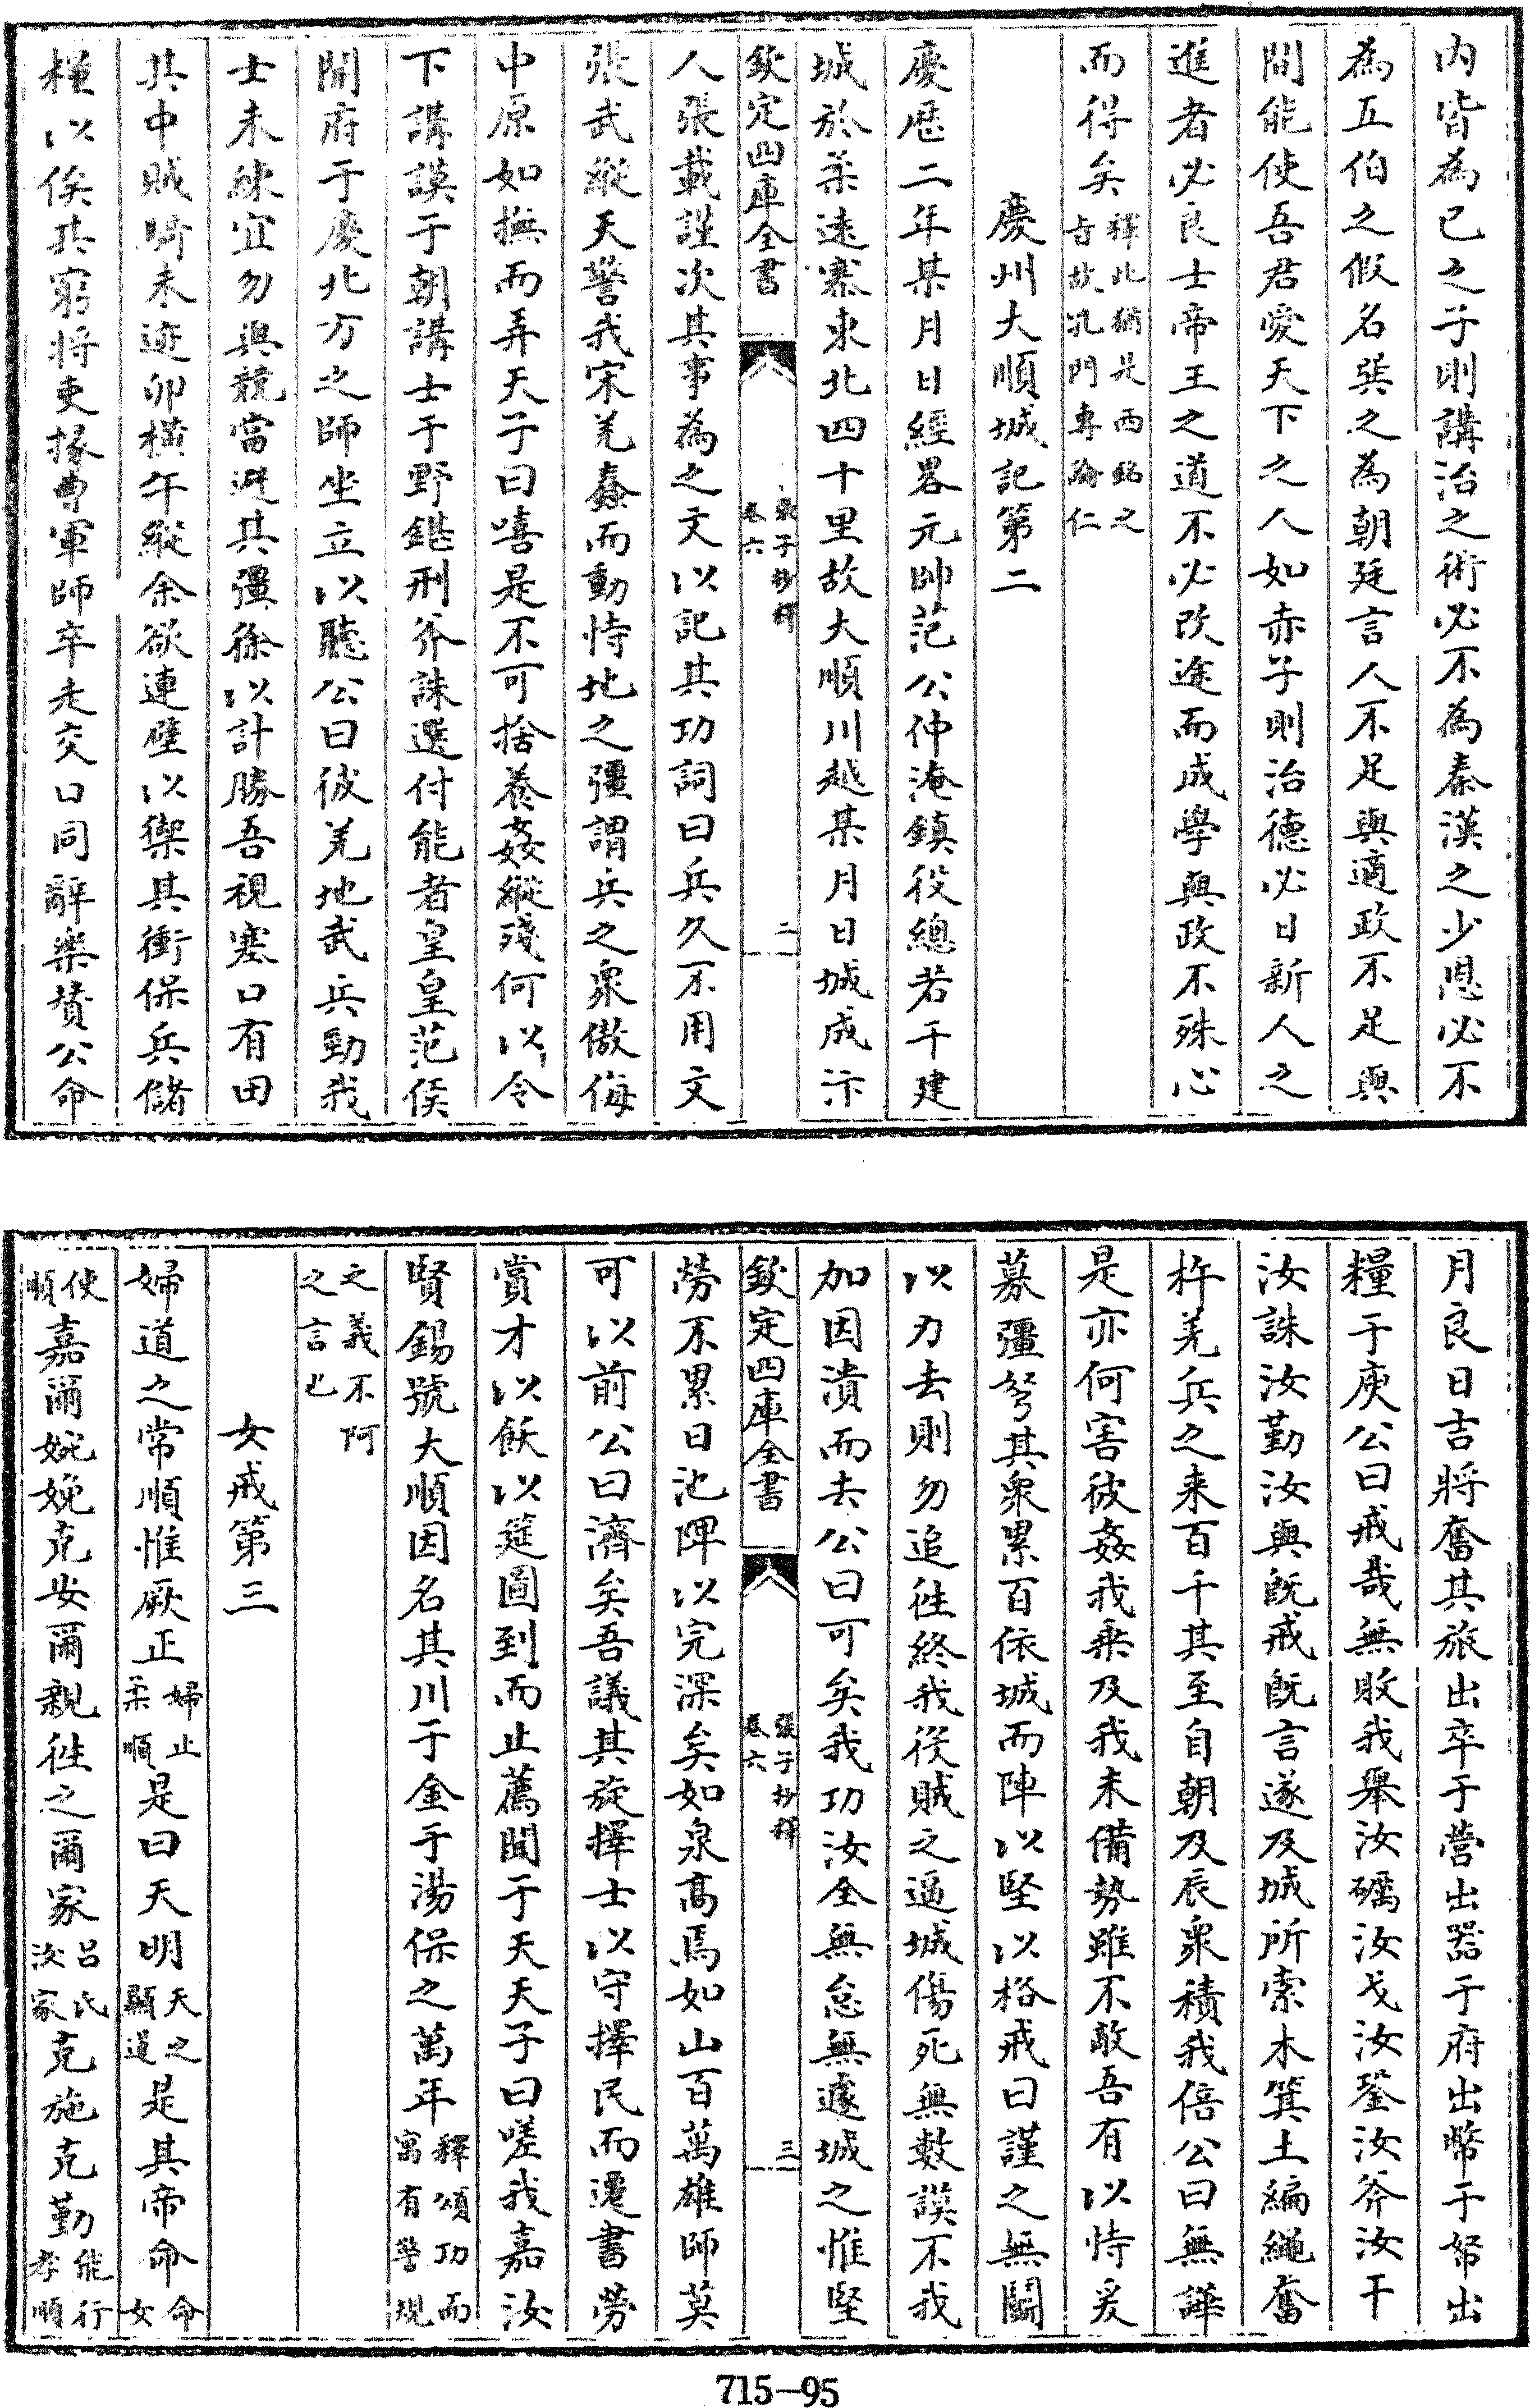 内皆為已之子則講治之術必不為秦漢之少恩必不
為五伯之假名巽之為朝廷言人不足與適政不足與
間能使吾君愛天下之人如赤子則治德必日新人之
進者必良士帝王之道不必改途而成學與政不殊心
而得矣釋此猶是西銘之旨故孔門專論仁
慶州大順城記第二
慶厯二年某月日經畧元帥范公仲淹鎮役總若干建
城於柔逺寨東北四十里故大順川越某月日城成汴
欽定四庫全書 張子抄釋 卷六 二
人張載謹次其事為之文以記其功詞曰兵久不用文
張武縱天警我宋羌蠢而動恃地之彊謂兵之衆傲侮
中原如撫而弄天子曰嘻是不可捨養姦縱殘何以令
下講謨于朝講士于野鍖刑斧誅選付能者皇皇范侯
開府于慶北方之師坐立以聽公曰彼羌地武兵勁我
士未練宜勿與競當避其彊徐以計勝吾視塞口有田
其中賊騎未迹卯橫午縱余欲連壁以禦其衝保兵儲
糧以俟其窮將吏掾曹軍師卒走交口同辭樂贊公命
月良日吉將奮其旅出卒于營出器于府出幣于帑出
糧于庾公曰戒哉無敗我舉汝礪汝戈汝鋻汝斧汝干
汝誅汝勤汝與既戒既言遂及城所索木箕土編繩奮
杵羌兵之来百千其至自朝及辰衆積我倍公曰無譁
是亦何害彼姦我乘及我未備勢雖不敵吾有以恃爰
募彊弩其衆累百依城而陣以堅以格戒曰謹之無鬬
以力去則勿追徃終我役賊之逼城傷死無數謨不我
加因潰而去公曰可矣我功汝全無怠無遽城之惟堅
欽定四庫全書 張子抄釋 卷六 三
勞不累日池陴以完深矣如泉高焉如山百萬雄師莫
可以前公曰濟矣吾議其旋擇士以守擇民而遷書勞
賞才以飫以筵圖到而止薦聞于天天子曰嗟我嘉汝
賢錫號大順因名其川于金于湯保之萬年釋頌功而寓有警規
之義不阿之言也
女戒第三
婦道之常順惟厥正婦止柔順是曰天明天之顯道是其帝命命女
使順嘉爾婉娩克安爾親徃之爾家呂氏汝家克施克勤能行孝順
715-95